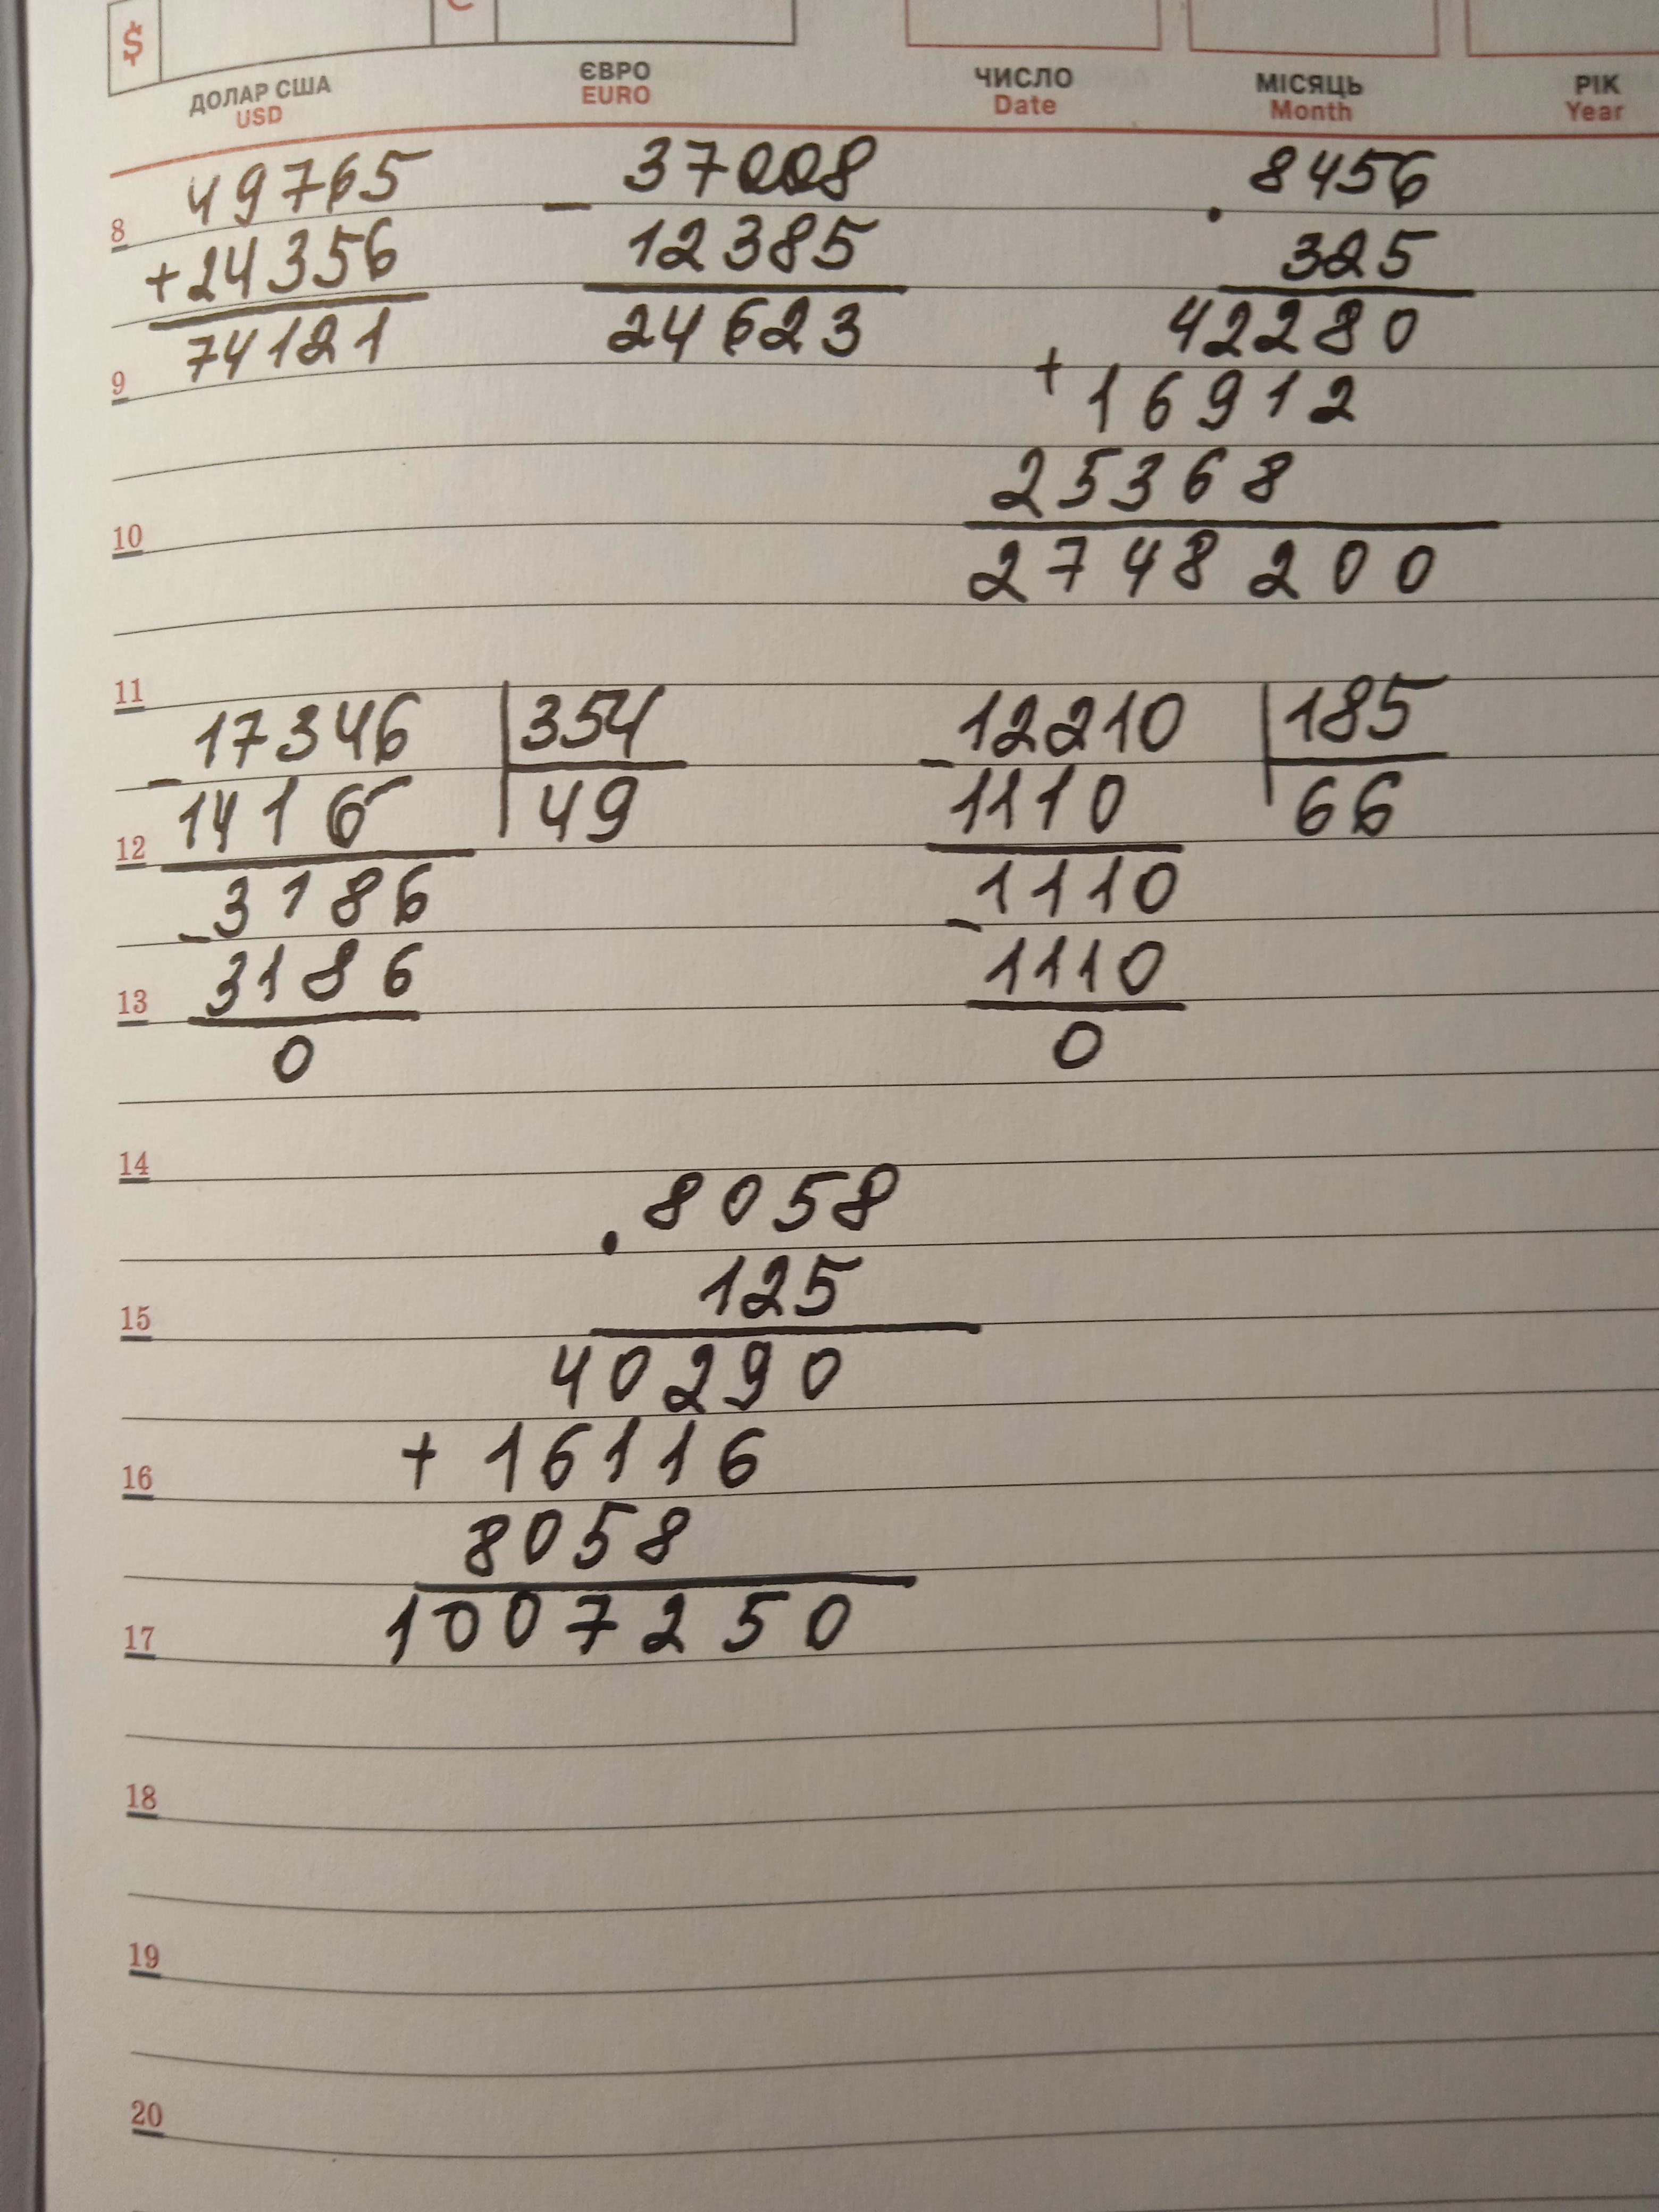 $ €
ДОЛАР США ЄВРО ЧИСЛО МІСЯЦЬ РІК
USD EURO Date Month Year
49765
+24356
74121
- 37008
12385
24623
. 8456
325
42280
+ 16912
25368
2748200
- 17346 354
1416 49
- 3186
3186
0
- 12210 185
1110 66
- 1110
1110
0
. 8058
125
40290
+ 16116
8058
1007250
8
9
10
11
12
13
14
15
16
17
18
19
20